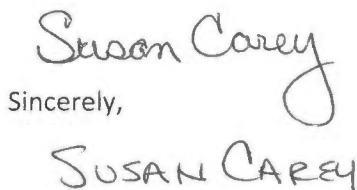 Susan Carey
Sincerely,
SUSAN CAREY